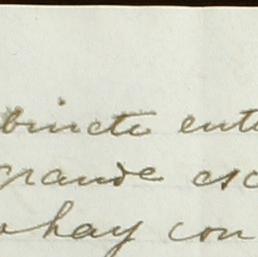 binete ente
grande esc
hay con